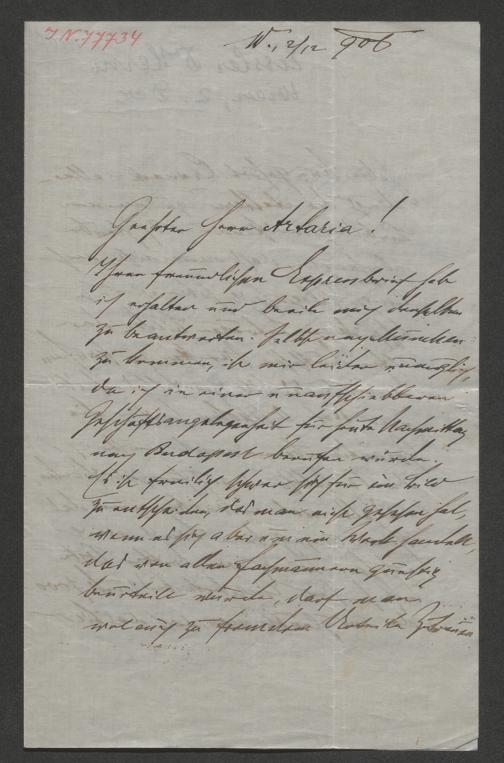 I.N. 77734
W., 2/12 906
Geehrter Herr Artaria!
Ihren freundlichen Expressbrief habe
ich erhalten und beeile mich denselben
zu beantworten. Selbst nach München
zu kommen, ist mir leider unmöglich,
da ich in einer unaufschiebbaren
Geschäftsangelegenheit für heute Nachmittag
nach Budapest berufen wurde.
Es ist freilich schwer sich für ein Bild
zu entscheiden, das man nicht gesehen hat,
wenn es sich aber um ein Werk handelt,
das von allen Fachmännern günstig
beurteilt wurde, darf man
wol auch zu fremdem Urteile